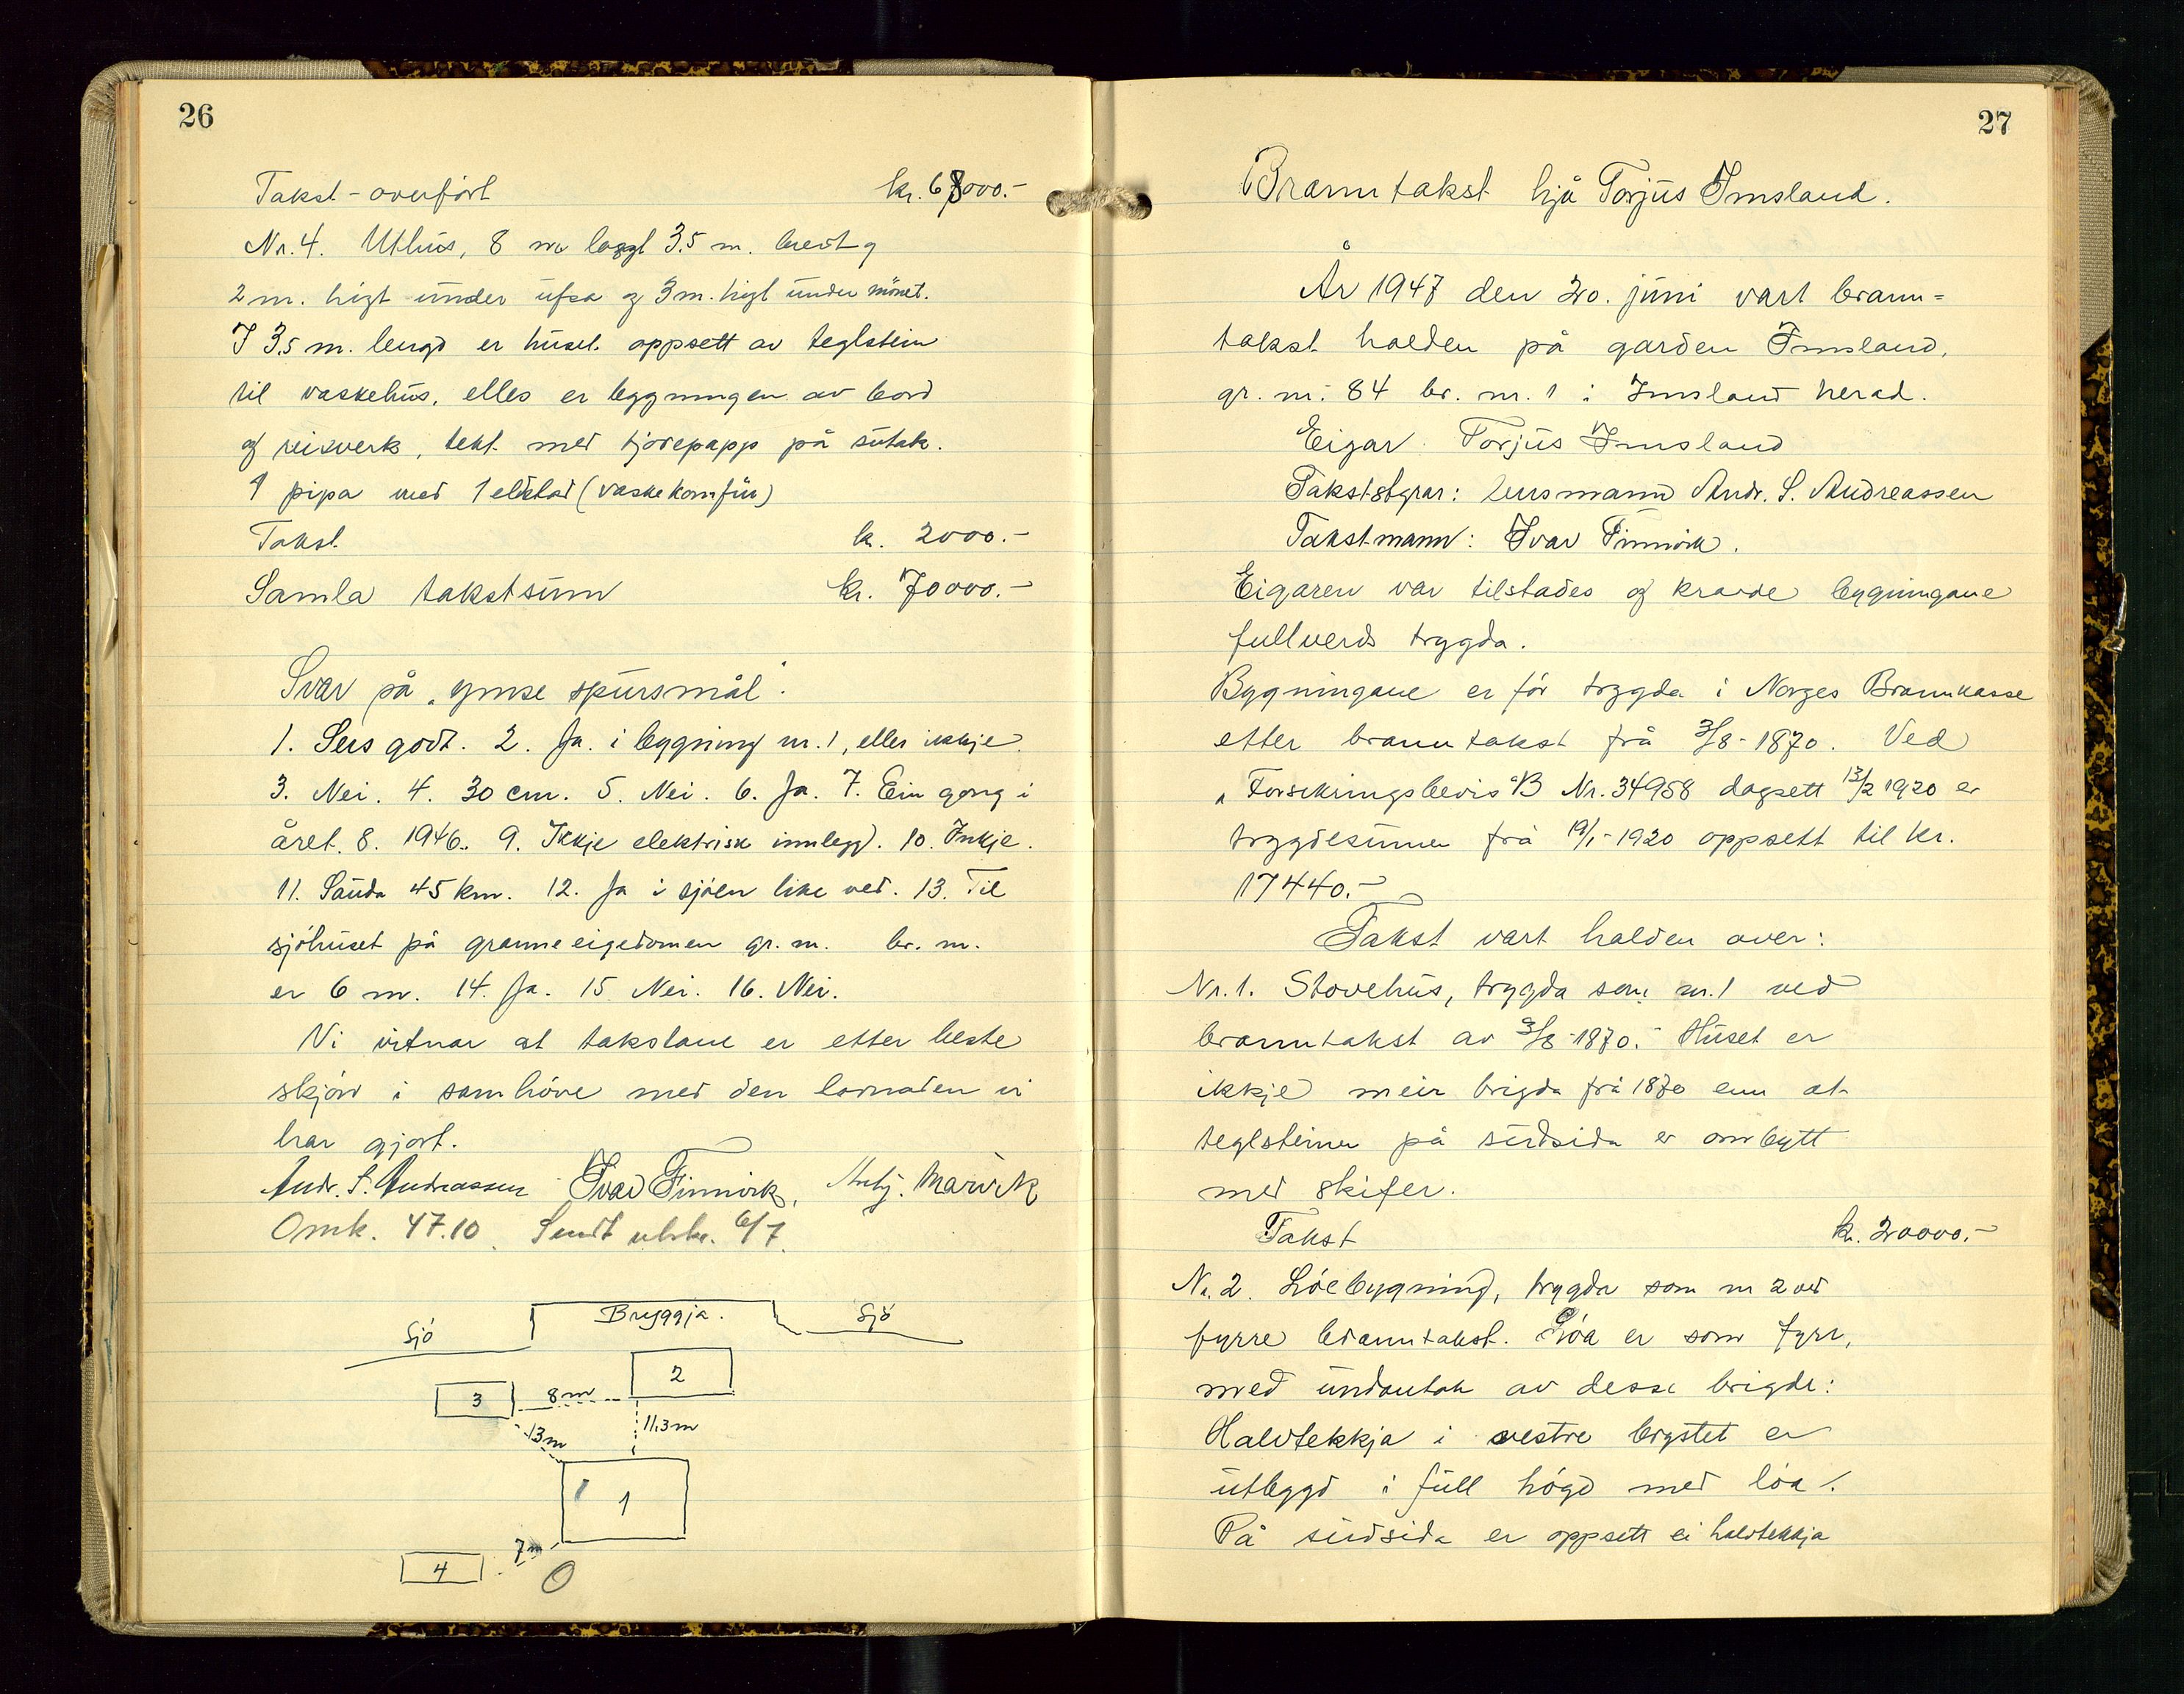 26
Takst - overført kr. 68000.-
Nr. 4. Uthus, 8 m langt 3.5 m. breidt og
2 m. høgt under ufsa og 3 m. høgt under mønet.
I 3.5 m. lengd er huset oppsett av teglstein
til vaskehus, elles er bygningen av bord
og reisverk, tekt med tjørepapp på sutak.
1 pipa med 1 eldstad (vaskekomfür)
Takst kr. 2000.-
Samla takstsum kr. 70000.-
Svar på „ymse spursmål".
1. Sers godt. 2. Ja. i bygning nr. 1, elles ikkje.
3. Nei. 4. 30 cm. 5. Nei. 6. Ja. 7. Ein gong i
året. 8. 1946. 9. Ikkje elektrisk innlegg. 10. Inkje.
11. Sauda 45 km. 12. Ja i sjøen like ved. 13. Til
sjøhuset på granneeigedomen gr. nr. br. nr.
er 6 m. 14. Ja. 15 Nei. 16. Nei.
Vi vitnar at takstane er etter beste
skjønn i samhøve med den lovnaden vi
har gjort.
Andr. S. Andreassen Ivar Finnvik, Marvik
Omk. 47.10. Sendt utskr. 6/7.
Sjø Bryggja. Sjø
2
3 8 m
13 m 11,3 m
1
7 m
4
27
Branntakst hjå Torjus Imsland.
År 1947 den 20. juni vart brann=
takst halden på garden Imsland,
gr. nr. 84 br. nr. 1 i Imsland herad.
Eigar Torjus Imsland
Takststyrar: lensmann Andr. S. Andreassen
Takstmann: Ivar Finnvik.
Eigaren var tilstades og kravde bygningane
fullverds trygda.
Bygningane er før trygda i Norges Brannkasse
etter branntakst frå 3/8-1870. Ved
„Forsikringsbevis" B Nr. 34958 dagsett 13/2 1920 er
trygdesumen frå 19/1-1920 oppsett til kr.
17440.-
Takst vart halden over:
Nr. 1. Stovehus, trygda som nr. 1 ved
branntakst av 3/8-1870. Huset er
ikkje meir brigda frå 1870 enn at
teglsteinen på sudsida er ombytt
med skifer.
Takst kr. 20000.-
Nr. 2. Løebygning, trygda som nr 2 ved
fyrre branntakst. Løa er som fyrr,
med undantak av desse brigde:
Halvtekkja i vestre brystet er
utbygd i full høgd med løa.
På sudsida er oppsett ei halvtekkja